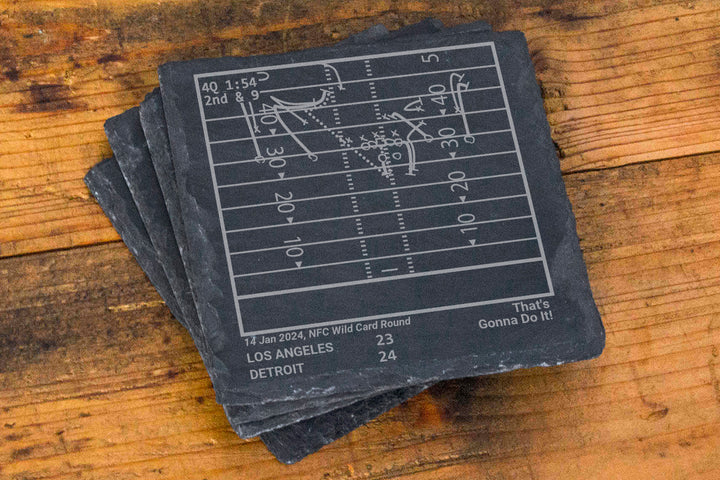 4Q 1:54
2nd & 9
5
40
40
30
30
20
20
10
10
14 Jan 2024, NFC Wild Card Round
LOS ANGELES 23
DETROIT 24
That's
Gonna Do It!